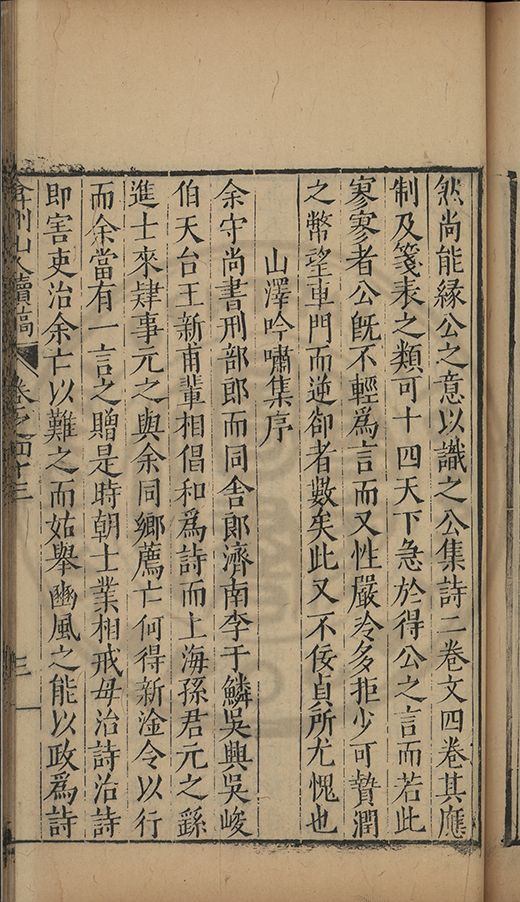 然尚能緣公之意以識之公集詩二卷文四卷其應
制及箋表之類可十四天下急於得公之言而若此
寥寥者公旣不輕爲言而又性嚴冷多拒少可贄潤
之幣望車門而逆卻者數矣此又不佞貞所尤愧也
山澤吟嘯集序
余守尚書刑部郎而同舍郎濟南李于鱗吳興吳峻
伯天台王新甫輩相倡和爲詩而上海孫君元之繇
進士來肄事元之與余同鄉薦亡何得新淦令以行
而余當有一言之贈是時朝士業相戒毋治詩治詩
卽害吏治余亡以難之而姑舉豳風之能以政爲詩
弇州山人續稿 卷之四十三 三